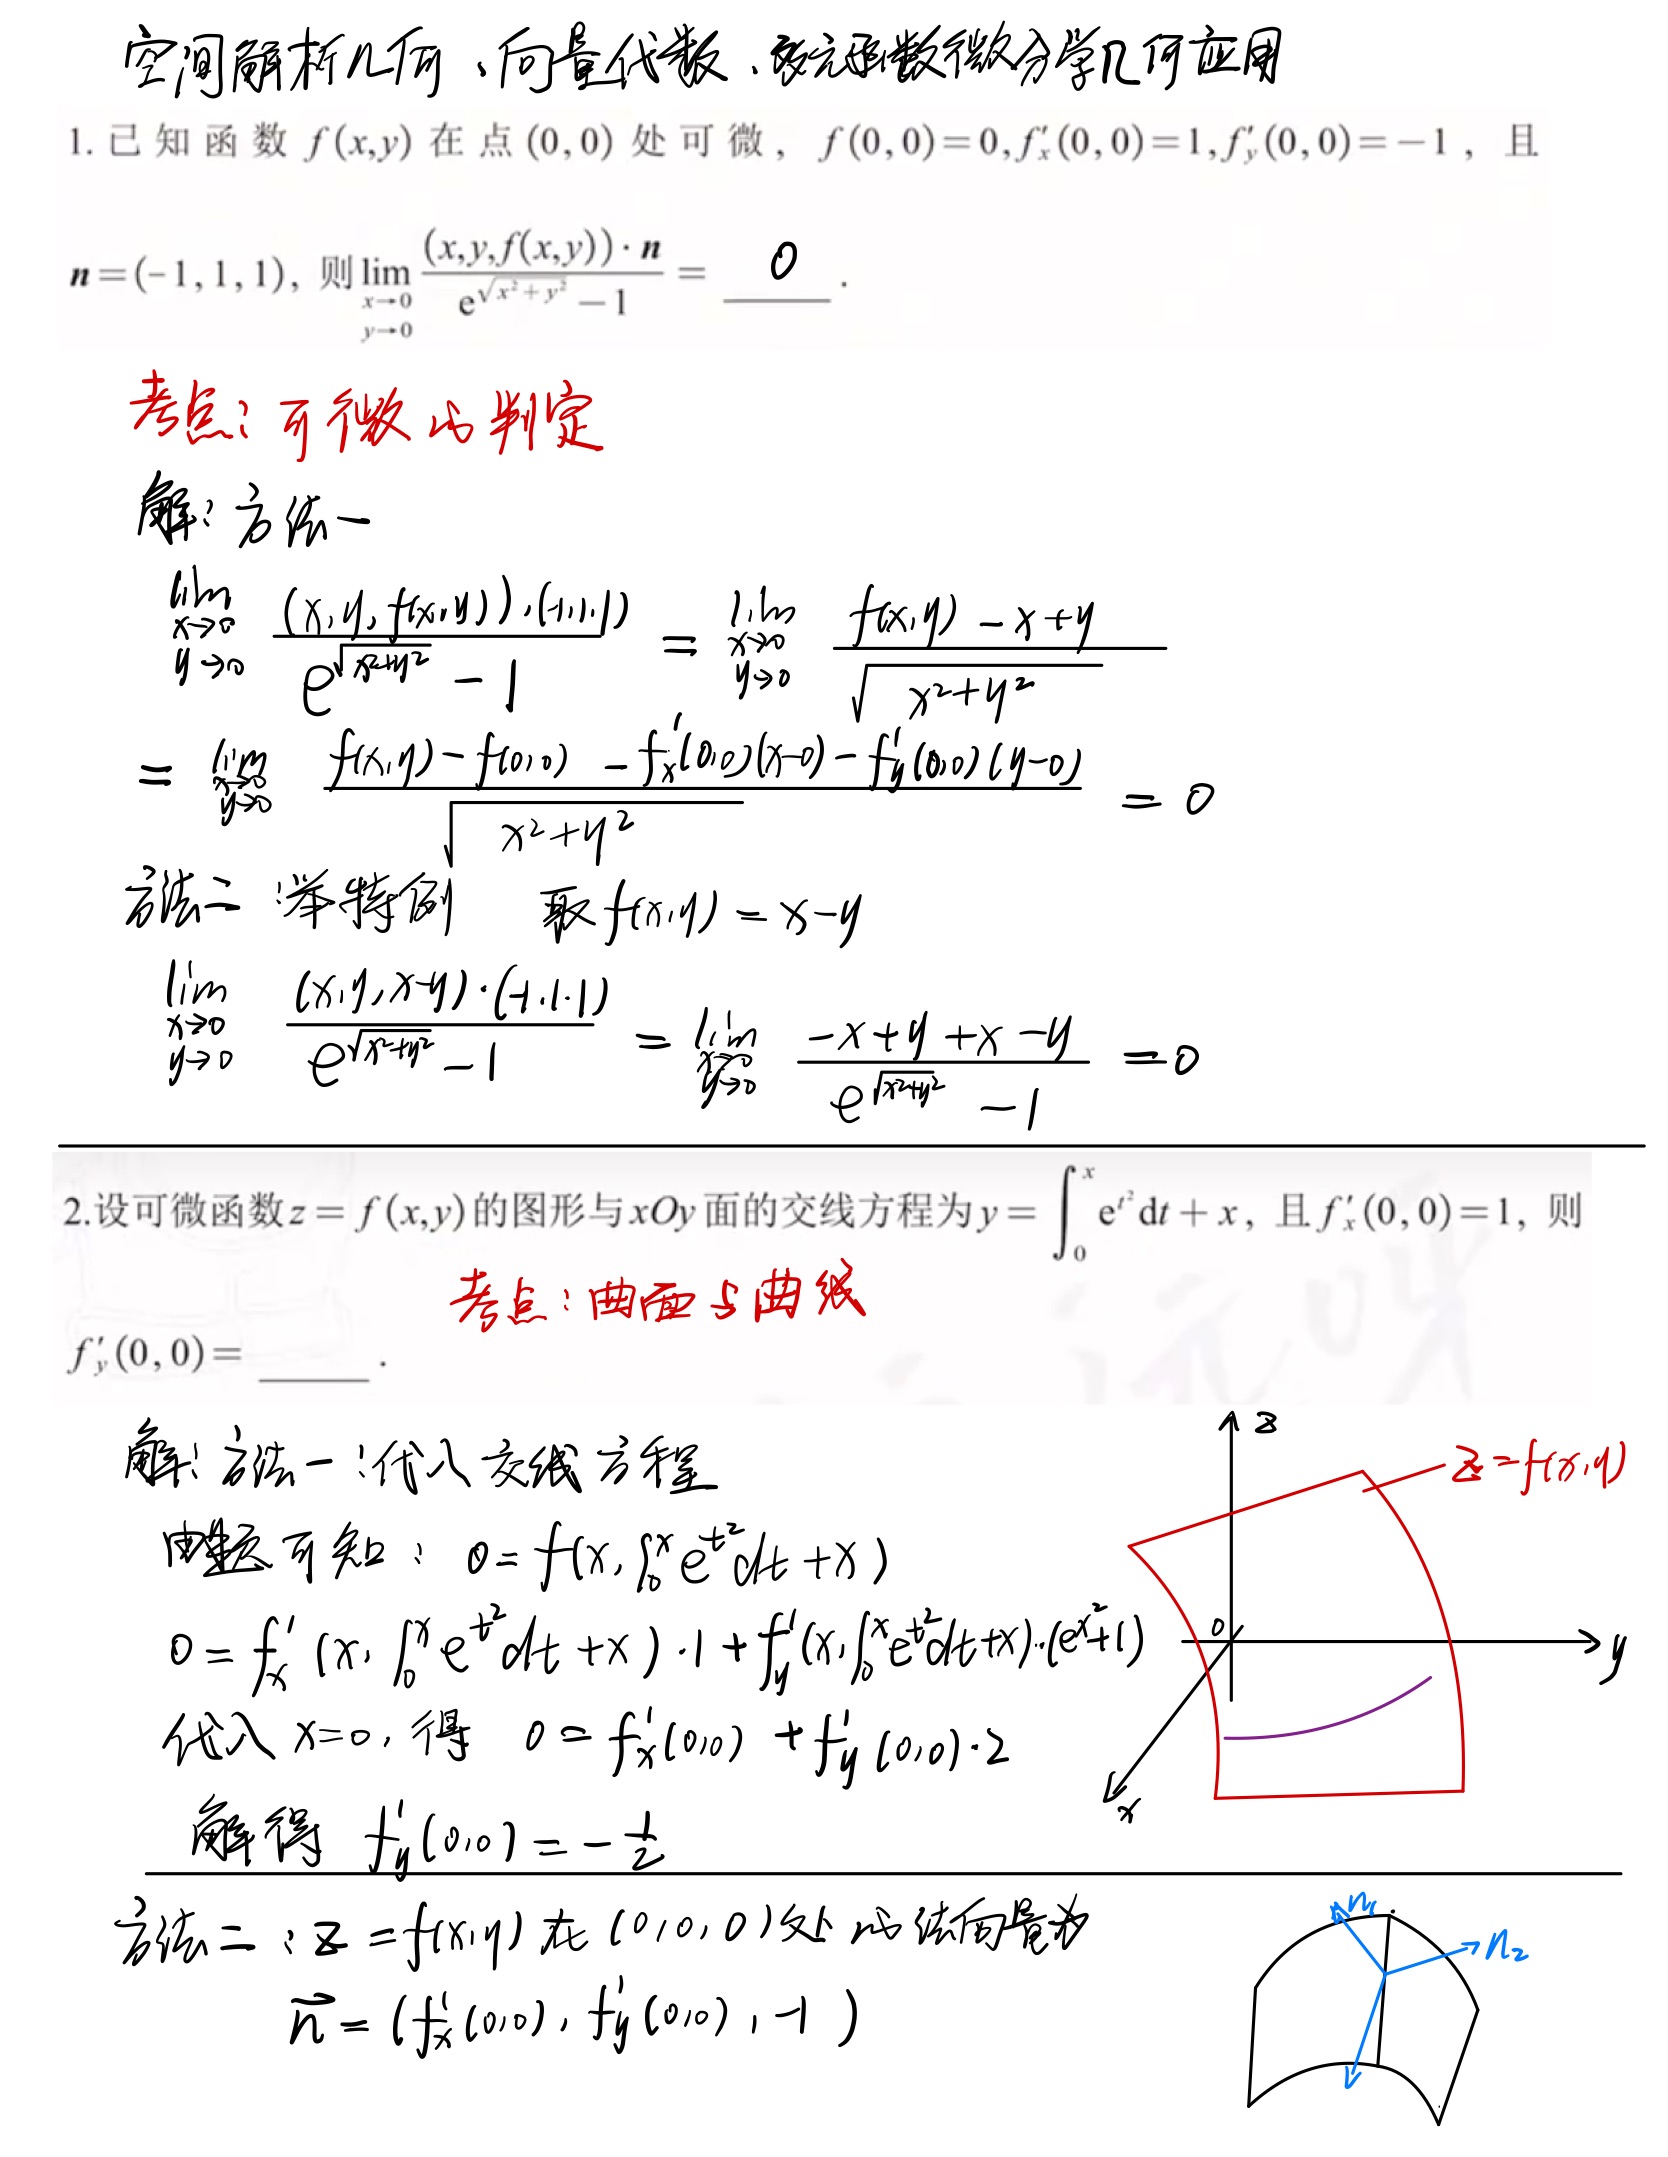 空间解析几何、向量代数、多元函数微分学几何应用
1. 已知函数 f(x,y) 在点 (0,0) 处可微, f(0,0)=0, f′ₓ(0,0)=1, f′ᵧ(0,0)=-1, 且
n=(-1,1,1), 则 lim_{x→0, y→0} ((x,y,f(x,y))·n)/(e^{√(x²+y²)}-1) = 0 .
考点: 可微的判定
解: 方法一
lim_{x→0, y→0} ((x,y,f(x,y))·(-1,1,1))/(e^{√(x²+y²)}-1) = lim_{x→0, y→0} (f(x,y)-x+y)/√(x²+y²)
= lim_{x→0, y→0} (f(x,y)-f(0,0)-f′ₓ(0,0)(x-0)-f′ᵧ(0,0)(y-0))/√(x²+y²) = 0
方法二: 举特例 取 f(x,y)=x-y
lim_{x→0, y→0} ((x,y,x-y)·(-1,1,1))/(e^{√(x²+y²)}-1) = lim_{x→0, y→0} (-x+y+x-y)/(e^{√(x²+y²)}-1) = 0
2.设可微函数 z=f(x,y) 的图形与 xOy 面的交线方程为 y=∫₀ˣ e^{t²}dt+x, 且 f′ₓ(0,0)=1, 则
考点: 曲面与曲线
f′ᵧ(0,0)=____.
解: 方法一: 代入交线方程
由题可知: 0=f(x,∫₀ˣ e^{t²}dt+x)
0=f′ₓ(x,∫₀ˣ e^{t²}dt+x)·1+f′ᵧ(x,∫₀ˣ e^{t²}dt+x)·(e^{x²}+1)
代入 x=0, 得 0=f′ₓ(0,0)+f′ᵧ(0,0)·2
解得 f′ᵧ(0,0)=-1/2
z
z=f(x,y)
0
y
x
方法二: z=f(x,y) 在 (0,0,0) 处的法向量为
n⃗=(f′ₓ(0,0), f′ᵧ(0,0), -1)
n₁
n₂